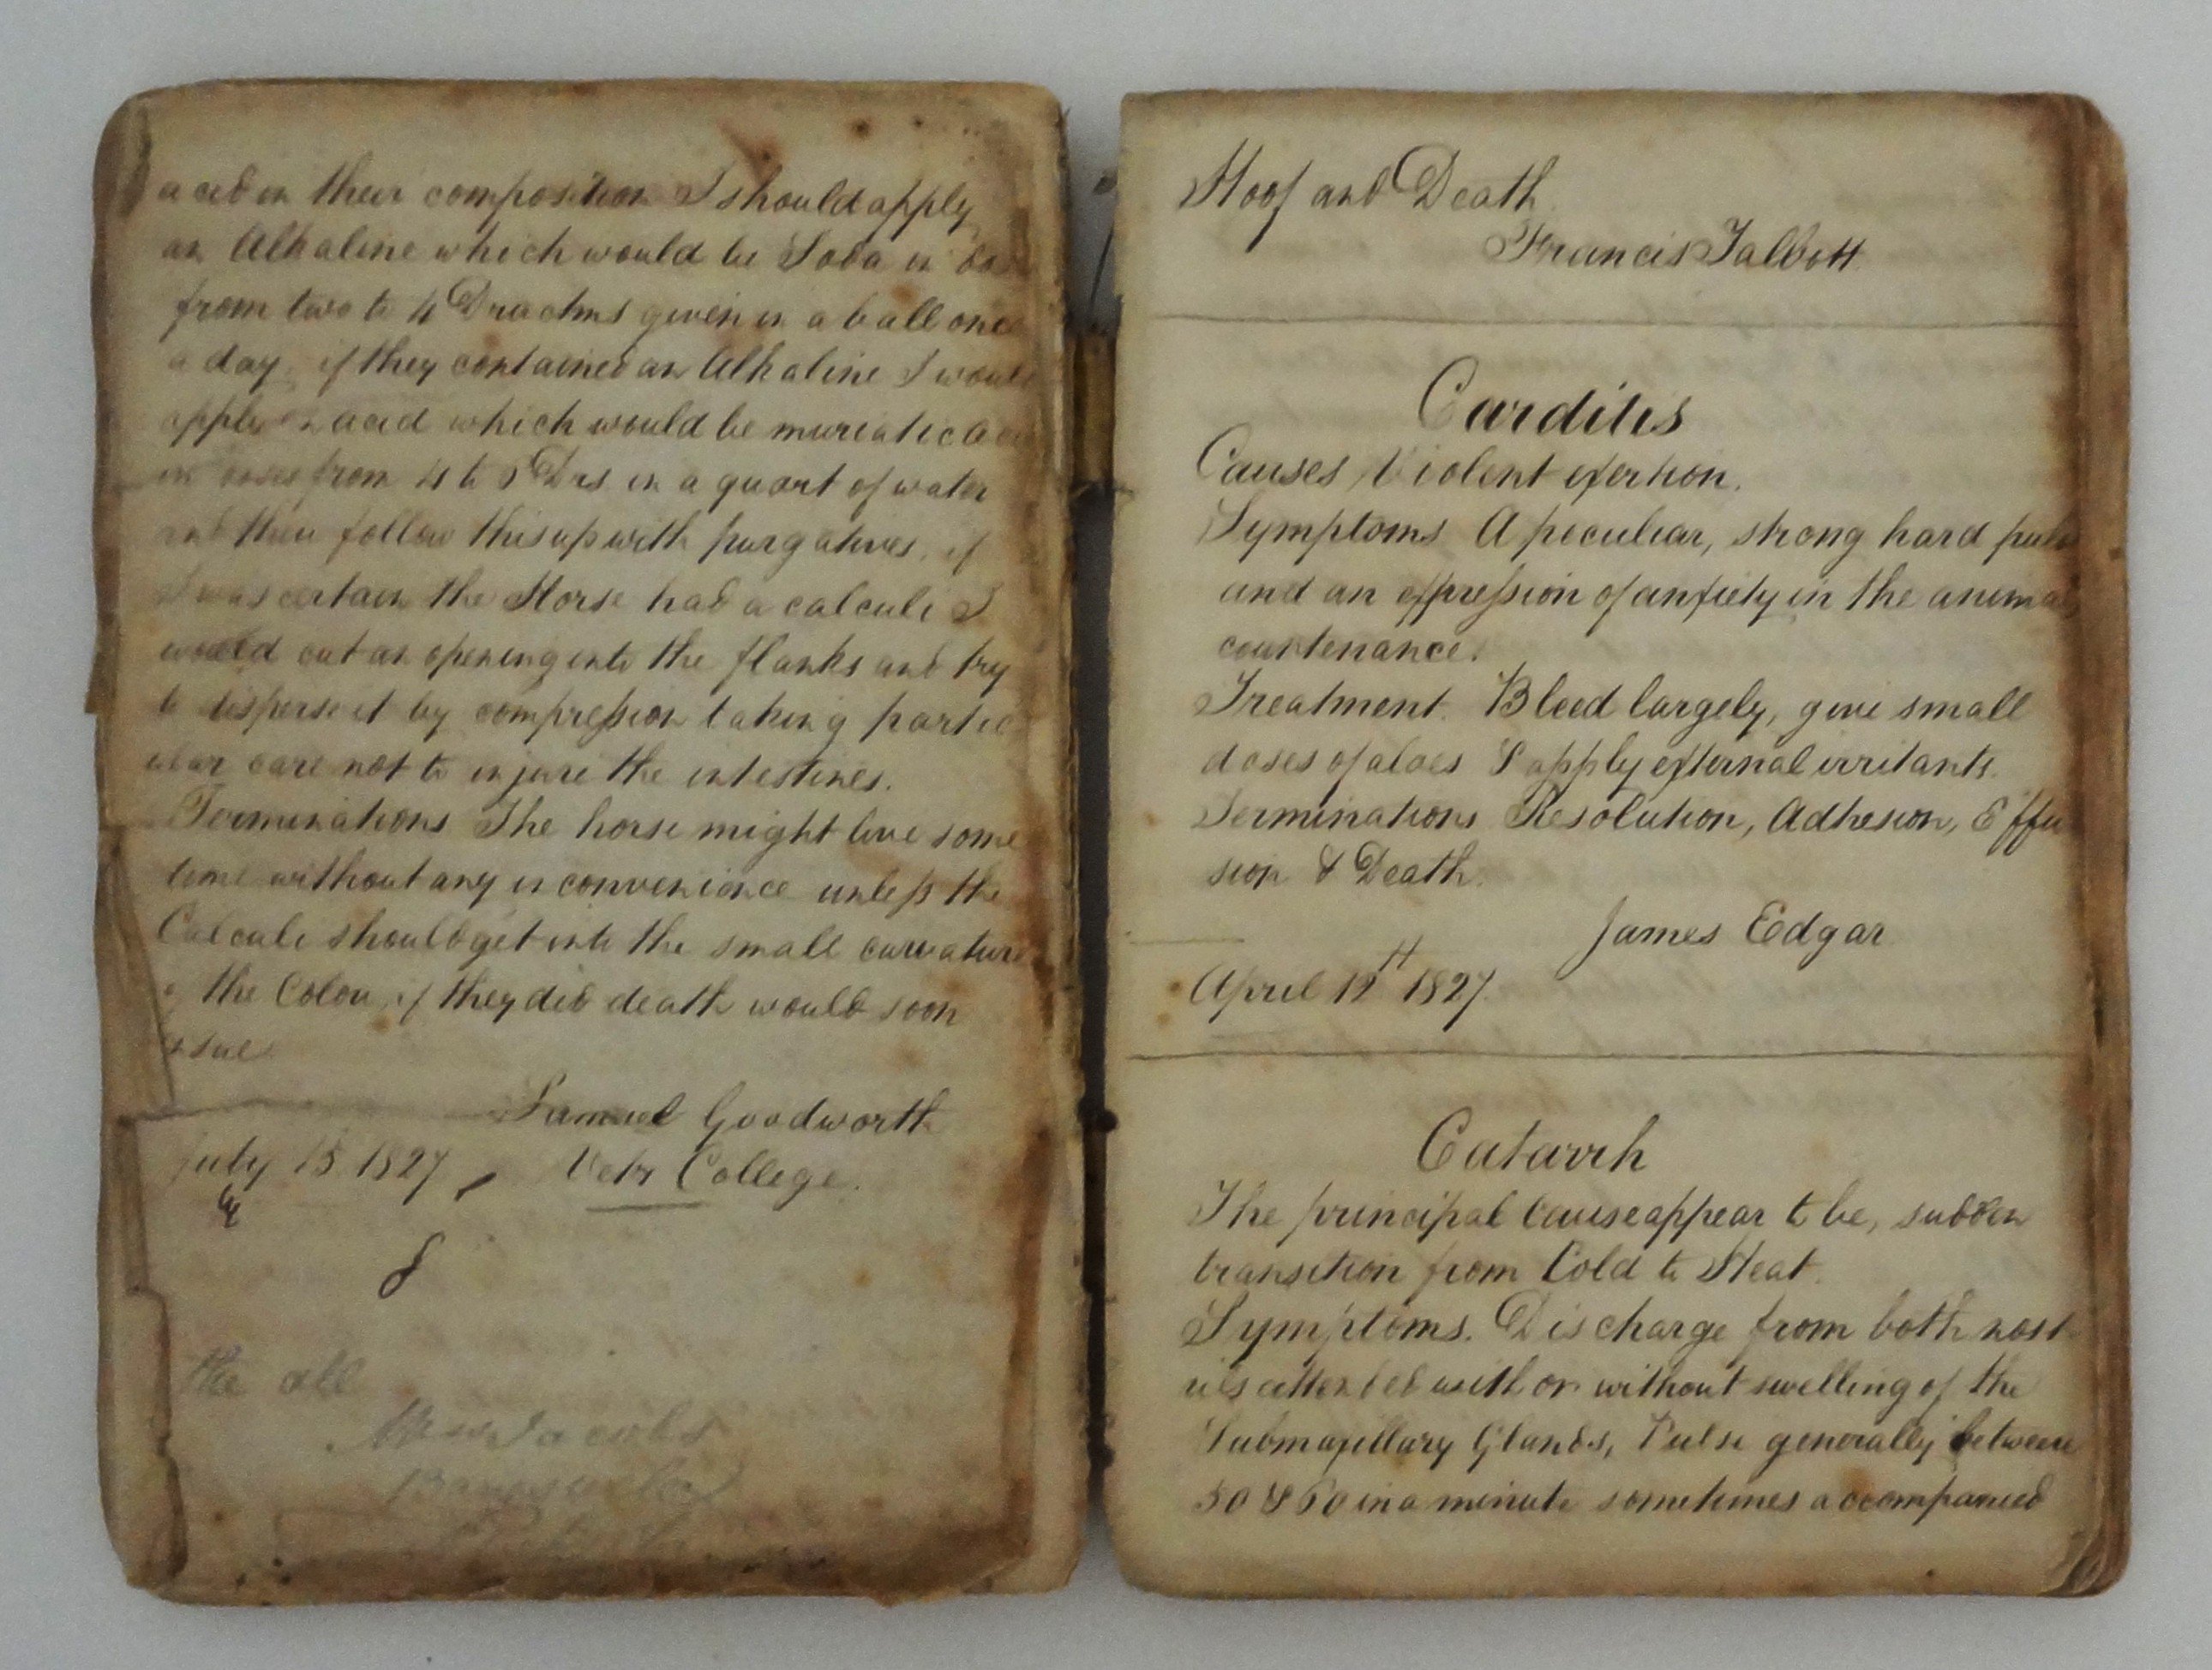 acid in their composition I should apply
an Alkaline which would be Soda in
from two to 4 Drachms given in a ball once
a day, if they contained an Alkaline I would
apply an acid which would be muriatic
in doses from 4 to Drs in a quart of water
and then follow this up with purgatives, if
I was certain the Horse had a calculi I
would cut an opening into the flanks and try
to disperse it by compression taking partic
ular care not to injure the intestines.
Terminations The horse might live some
time without any inconvenience unless the
Calculi should get into the small curvature
of the Colon, if they did death would soon
ensue
Samuel Goodworth
July 15 1827, Vety College.
the all
Jacobs
Hoof and Death
Francis Talbott
Carditis
Causes, Violent exertion.
Symptoms A peculiar, strong hard pulse
and an expression of anxiety in the animals
countenance.
Treatment. Bleed largely, give small
doses of aloes & apply external irritants.
Terminations Resolution, Adhesion, Effu
sion & Death.
James Edgar
April 12th 1827.
Catarrh
The principal cause appear to be, sudden
transition from Cold to Heat.
Symptoms. Discharge from both nost
rils attended with or without swelling of the
Submaxillary Glands, Pulse generally between
50 & 60 in a minute sometimes accompanied